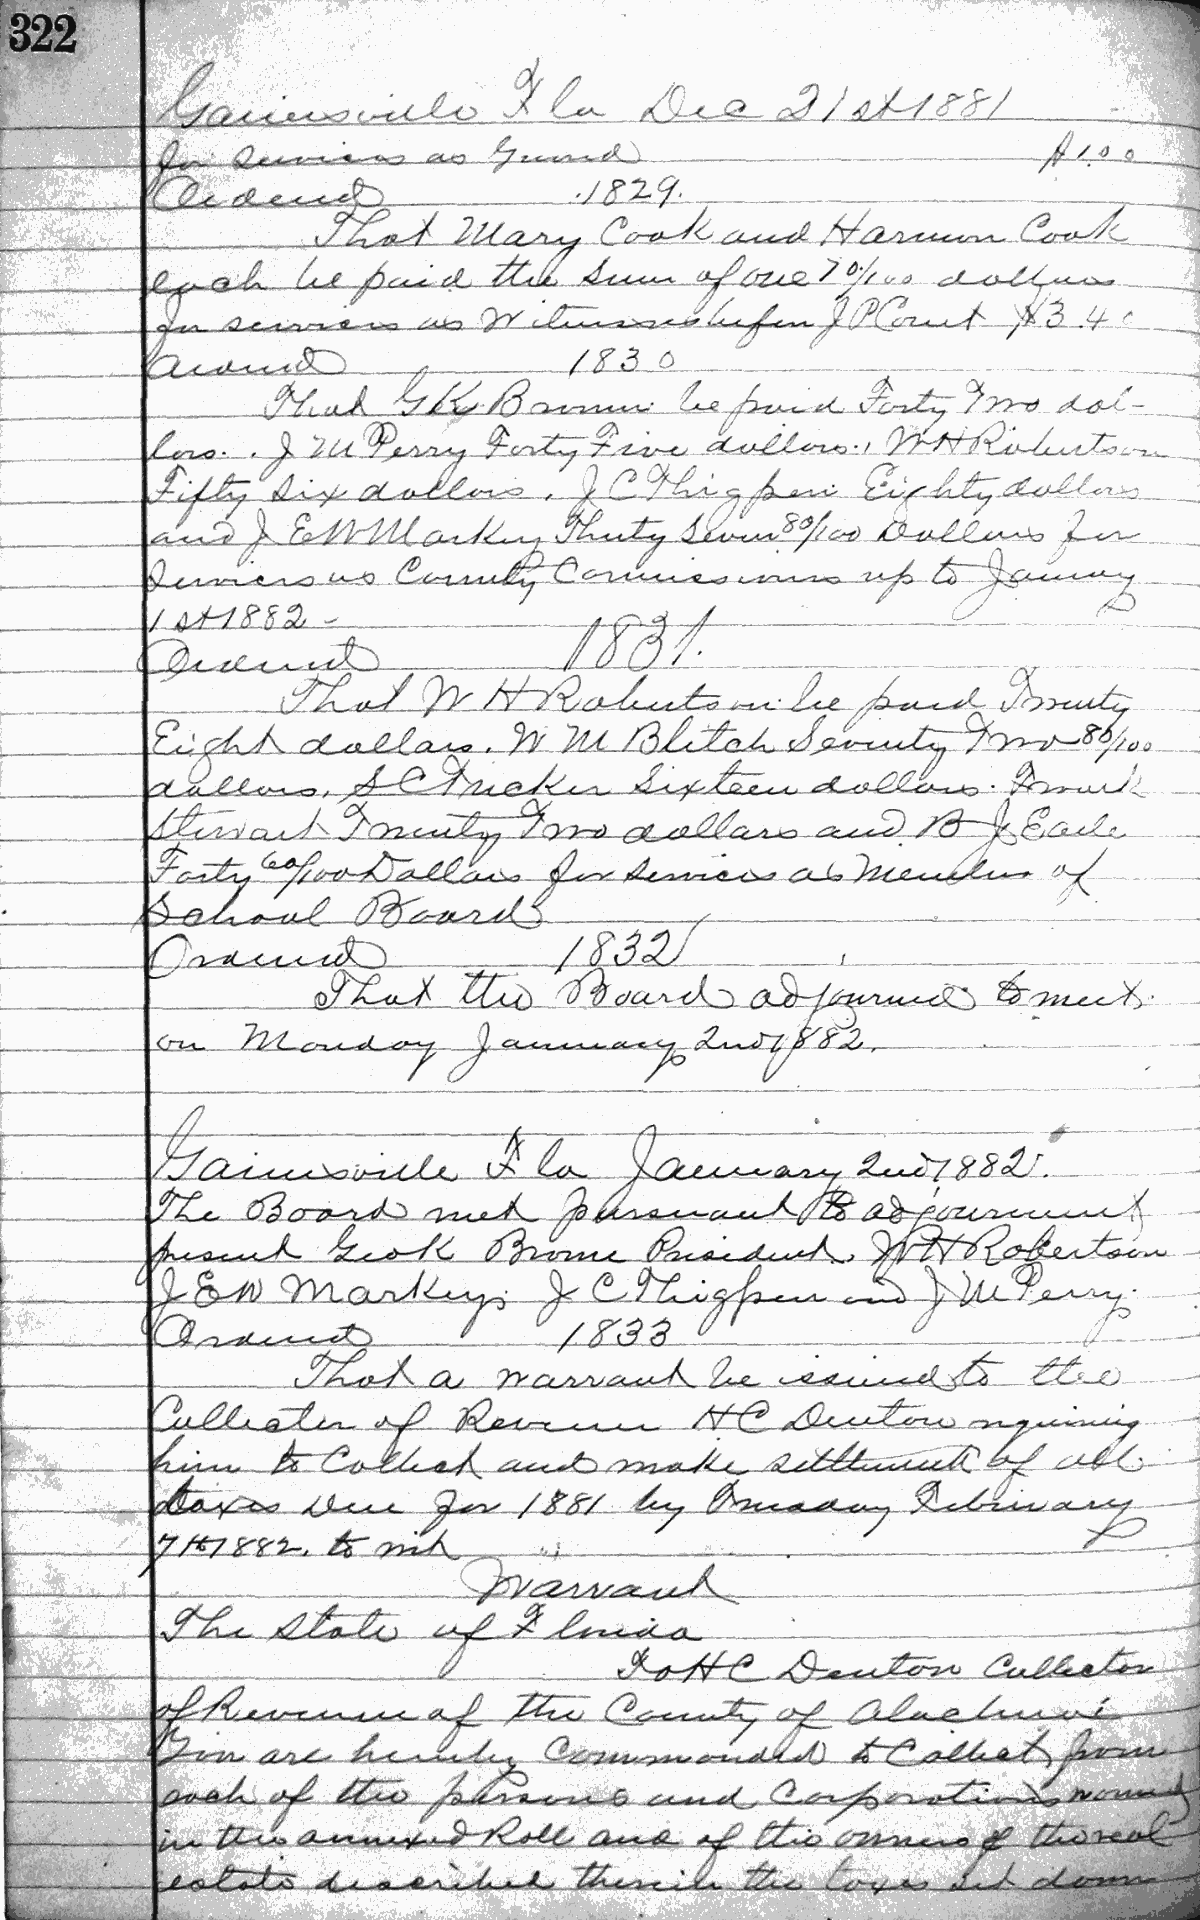 322
Gainesville Fla Dec 21st 1881
for services as Guard $1.00
Ordered 1829.
That Mary Cook and Harmon Cook
each be paid the sum of one 70/100 dollars
for services as Witnesses before J P Court $3.40
Ordered 1830
That G K Brome be paid Forty Two dol-
lars. J M Perry Forty Five dollars, W H Robertson
Fifty Six dollars. J C Thigpen Eighty dollars
and J E W Markey Thirty Seven 80/100 Dollars for
services as County Commissioners up to January
1st 1882 -
Ordered 1831.
That W H Robertson be paid Twenty
Eight dollars. W M Blitch Seventy Two 80/100
dollars, S C Tucker Sixteen dollars. Frank
Stewart Twenty Two dollars and B J Earle
Forty 60/100 Dollars for services as Members of
School Board
Ordered 1832
That the Board adjourned to meet
on Monday January 2nd 1882.
Gainesville Fla January 2nd 1882.
The Board met pursuant to adjournment
present Geo K Brome President. W H Robertson
J E W Markey, J C Thigpen and J M Perry.
Ordered 1833
That a warrant be issued to the
Collector of Revenue H C Denton requiring
him to Collect and make settlement of all
taxes due for 1881 by Tuesday February
7th 1882. to wit
Warrant
The State of Florida
To H C Denton Collector
of Revenue of the County of Alachua
You are hereby Commanded to Collect from
each of the persons and Corporations named
in the annexed Roll and of the owners of the real
estate described therein the taxes set down